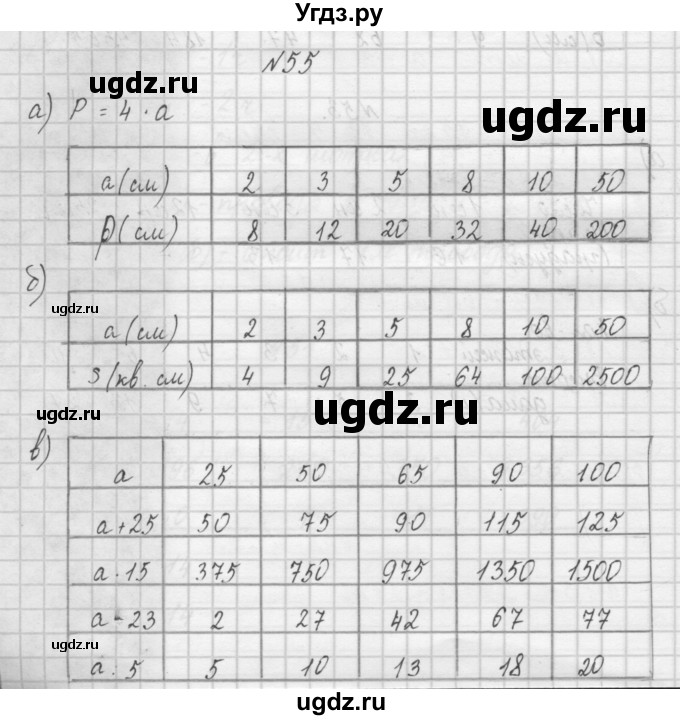 Угдз.ру
№55
ugdz.ru
ugdz.ru
а) P = 4 · a
a (см) 2 3 5 8 10 50
P (см) 8 12 20 32 40 200
б)
ugdz.ru
a (см) 2 3 5 8 10 50
S (кв. см) 4 9 25 64 100 2500
ugdz.ru
ugdz.ru
в)
a 25 50 65 90 100
a + 25 50 75 90 115 125
a · 15 375 750 975 1350 1500
a - 23 2 27 42 67 77
ugdz.ru
a : 5 5 10 13 18 20
ugdz.ru